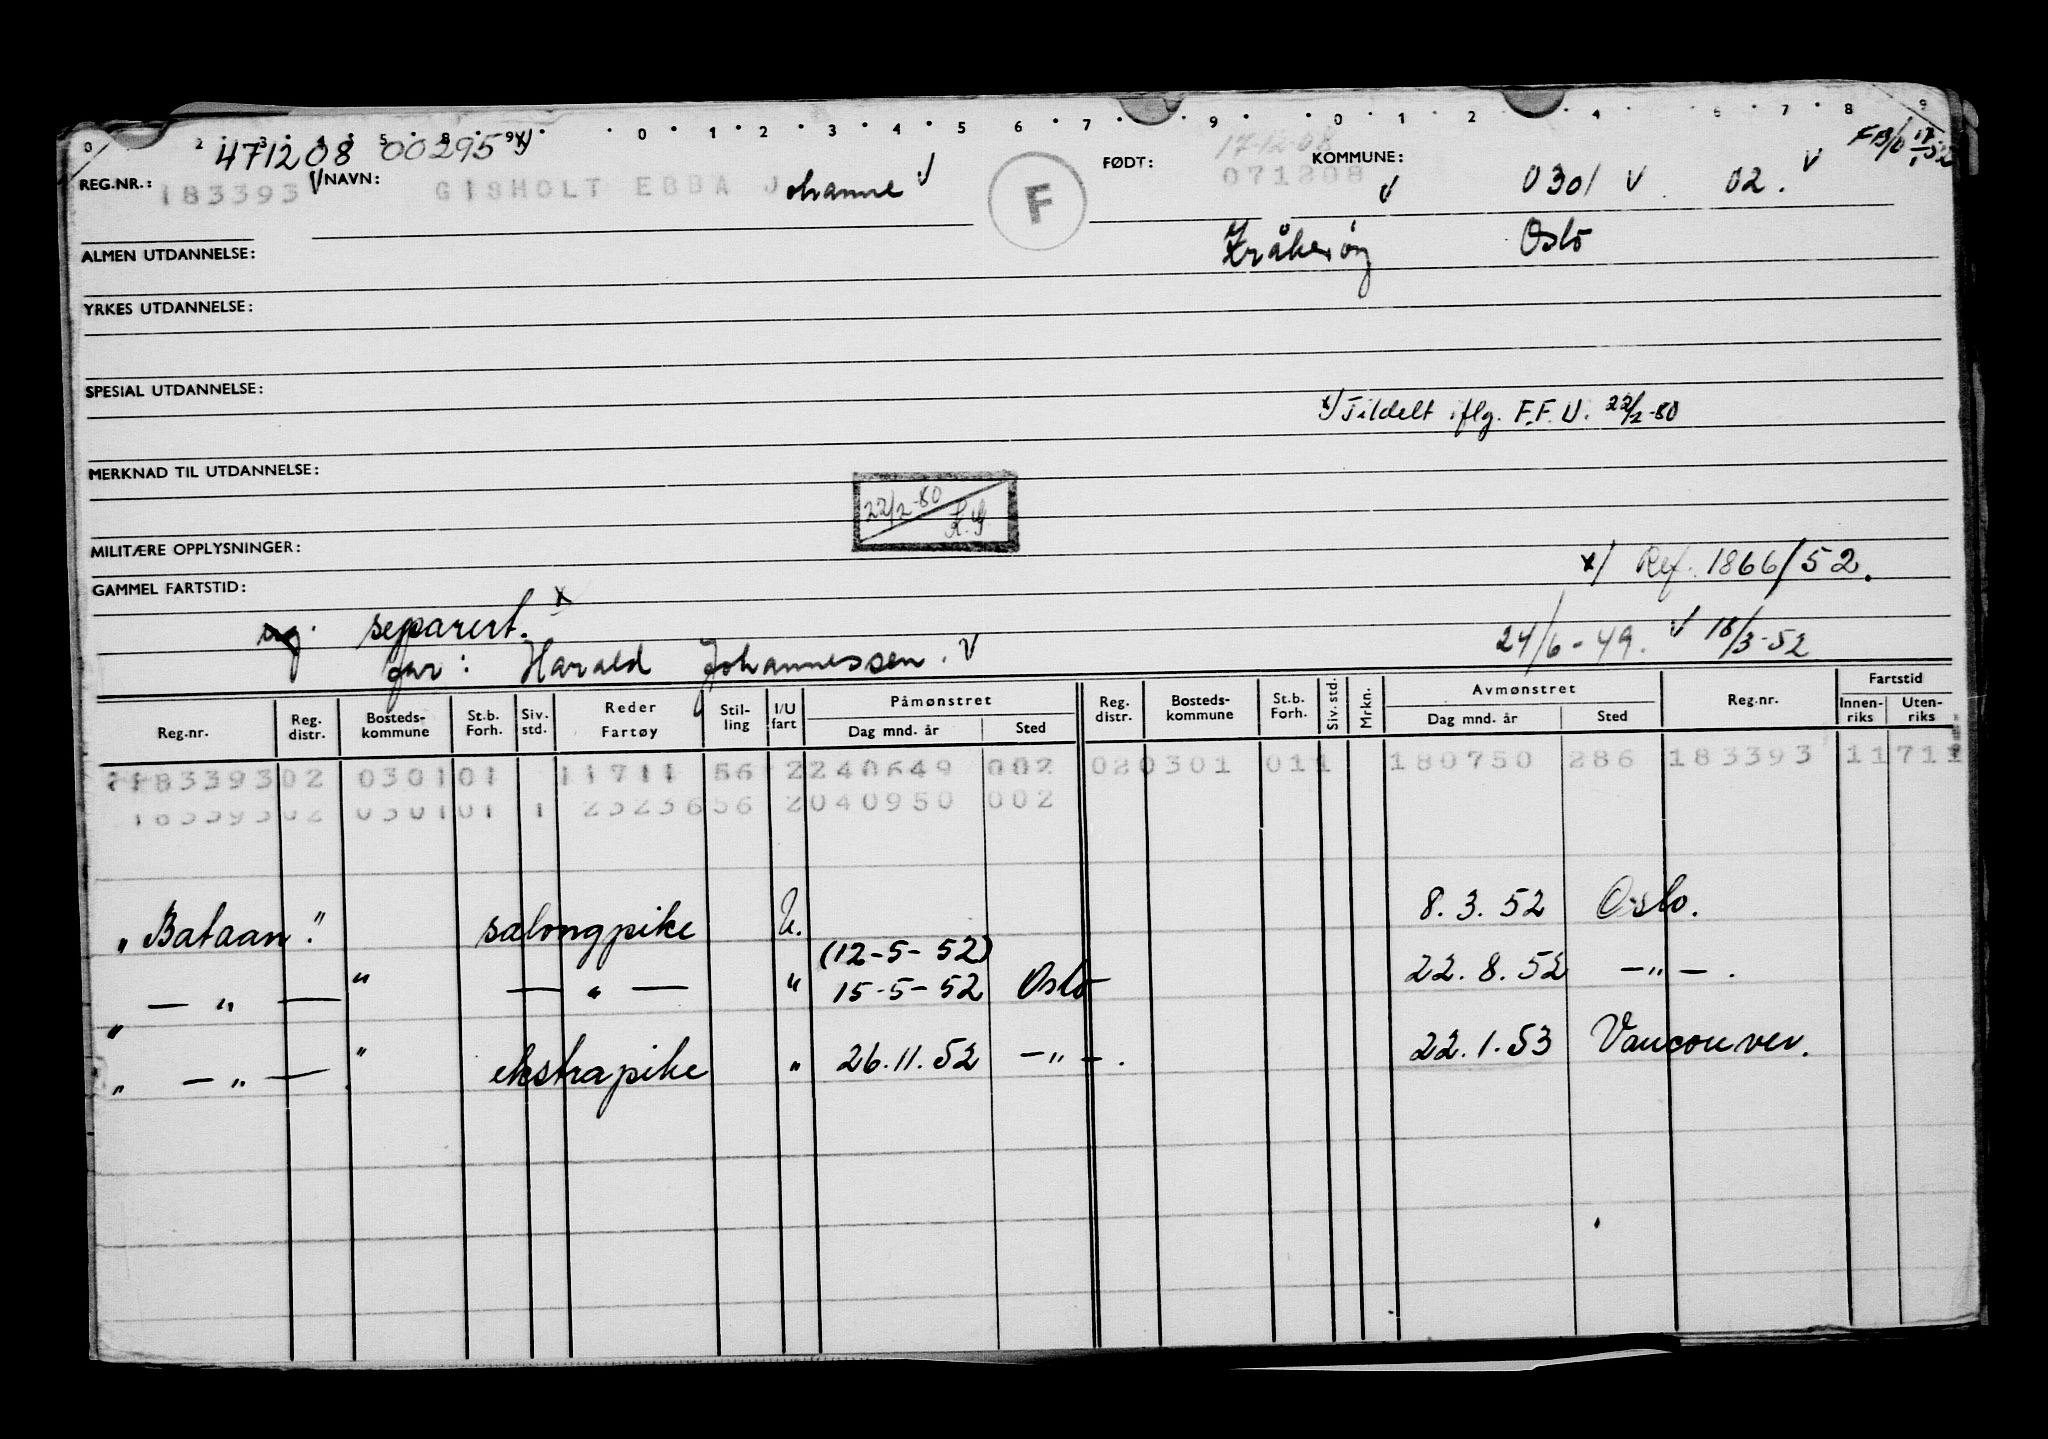 0 2 3 4 5 8 9 0 1 2 3 4 5 6 7 9 0 1 2 4 6 7 8 9
471208 00295 x/
17-12-08
REG.NR.: 183393 V NAVN: GISHOLT EBBA Johanne V F FØDT: 071208 KOMMUNE: V 0301 V 02. V
Kråkerøy Oslo
ALMEN UTDANNELSE:
YRKES UTDANNELSE:
SPESIAL UTDANNELSE:
x/ Tildelt iflg. F.F.U. 22/2-80
MERKNAD TIL UTDANNELSE:
22/2-80 K.G
MILITÆRE OPPLYSNINGER:
x/ Ref. 1866/52.
GAMMEL FARTSTID:
ug. separert. x
24/6-49. V 18/3-52
far: Harald Johannessen. V
Reg.nr. Reg. distr. Bosteds-kommune St.b. Forh. Siv. std. Reder Fartøy Stil-ling I/U fart Påmønstret Dag mnd. år Sted Reg. distr. Bosteds-kommune St.b. Forh. Siv. std. Mrkn. Avmønstret Dag mnd. år Sted Reg.nr. Fartstid Innen-riks Uten-riks
18339302 030101 11711 56 2240649 002 020301 011 180750 286 183393 11711
18339302 030101 1 2323656 2040950 002
"Bataan". salongpike U. 8.3.52 Oslo.
(12-5-52)
" — " — " — " — " 15-5-52 Oslo 22.8.52 —"—.
" — " — " ekstrapike " 26.11.52 —"—. 22.1.53 Vancouver.